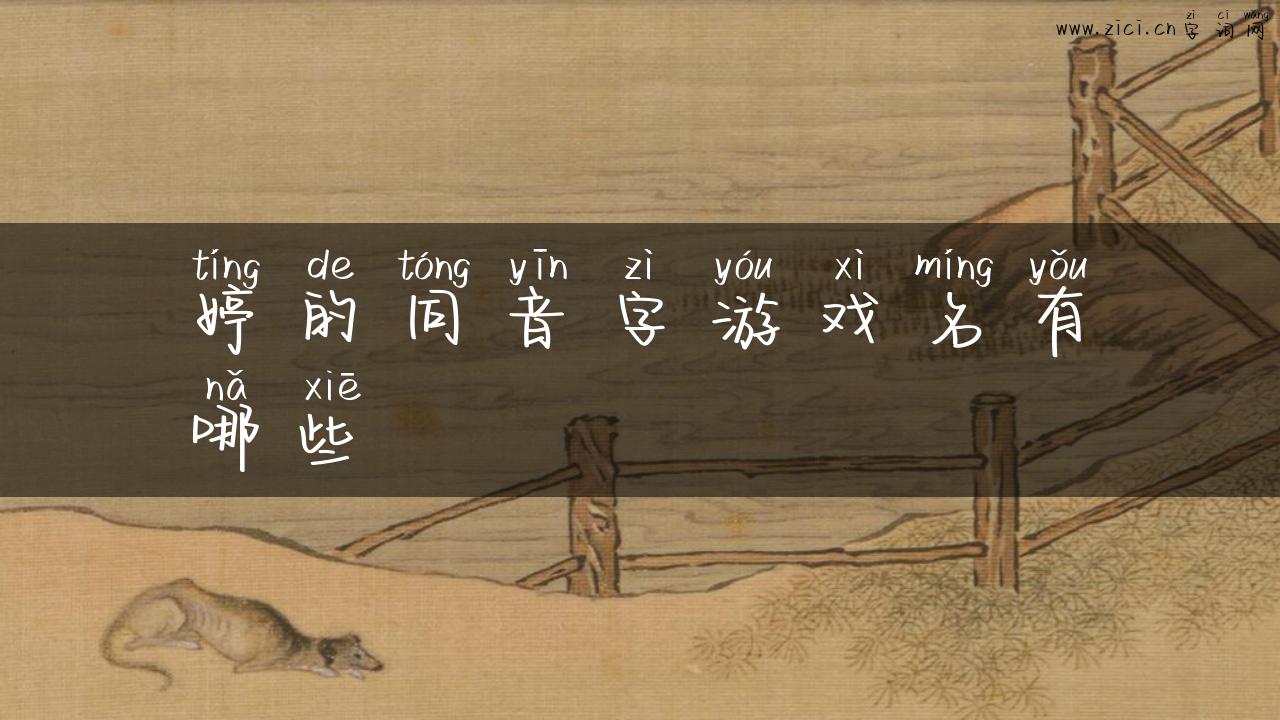 zì cí wǎng
www.zici.cn 字 词 网
tíng de tóng yīn zì yóu xì míng yǒu
婷 的 同 音 字 游 戏 名 有
nǎ xiē
哪 些